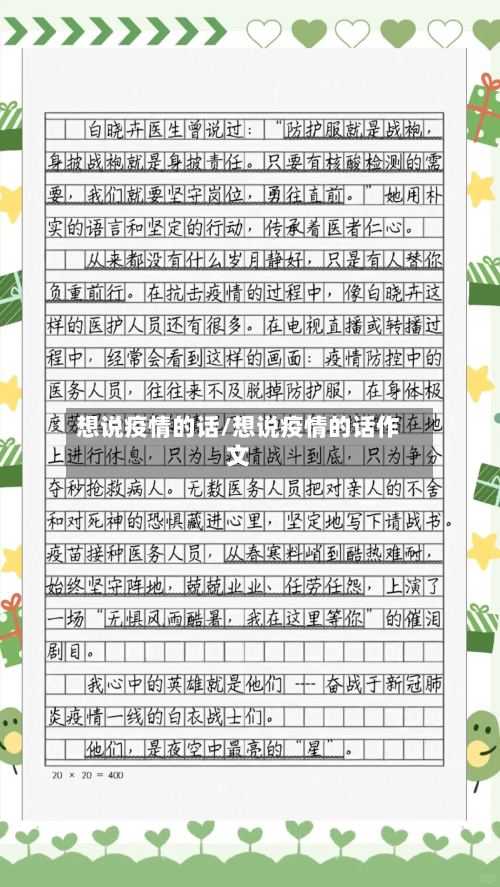 白晓卉医生曾说过:“防护服就是战袍,
身披战袍就是身披责任。只要有核酸检测的需
要,我们就要坚守岗位,勇往直前。”她用朴
实的语言和坚定的行动,传承着医者仁心。
从来都没有什么岁月静好,只是有人替你
负重前行。在抗击疫情的过程中,像白晓卉这
样的医护人员还有很多。在电视直播或转播过
程中,经常会看到这样的画面:疫情防控中的
医务人员,往往来不及脱掉防护服,在身体极
度劳
在地
想说疫情的话/想说疫情的话作
文
上进行休息,只为与疫情战斗到底,只为争分
夺秒抢救病人。无数医务人员把对亲人的不舍
和对死神的恐惧藏进心里,坚定地写下请战书。
疫苗接种医务人员,从春寒料峭到酷热难耐,
始终坚守阵地,兢兢业业、任劳任怨,上演了
一场“无惧风雨酷暑,我在这里等你”的催泪
剧目。
我心中的英雄就是他们 ---- 奋战于新冠肺
炎疫情一线的白衣战士们。
他们,是夜空中最亮的“星”。
20 × 20 = 400